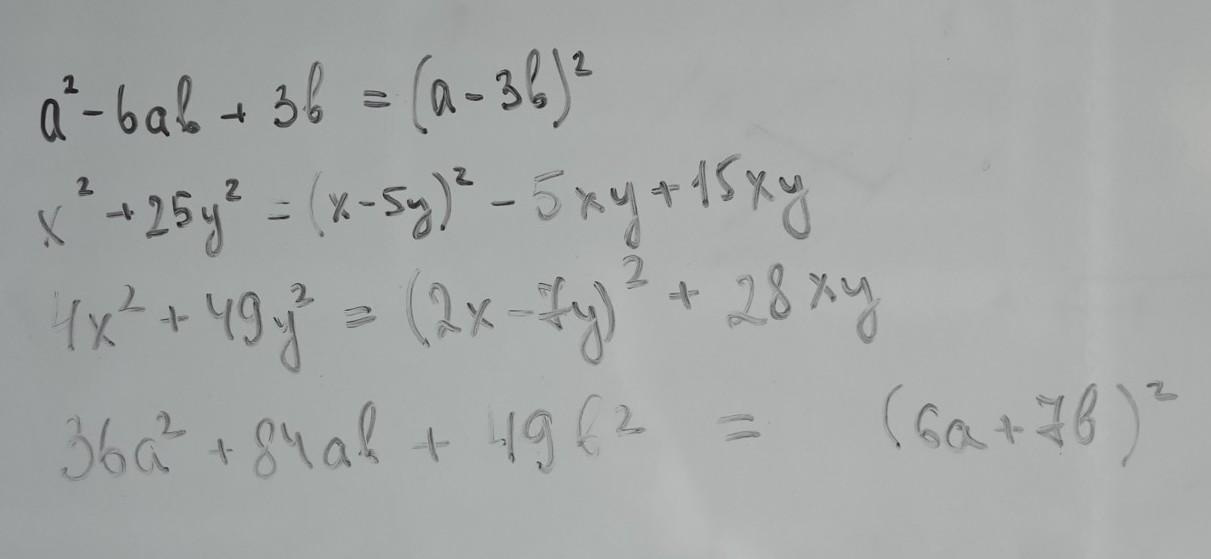 a² - 6ab + 3b = (a - 3b)²
x² + 25y² = (x - 5y)² - 5xy + 15xy
4x² + 49y² = (2x - 7y)² + 28xy
36a² + 84ab + 49b² = (6a + 7b)²